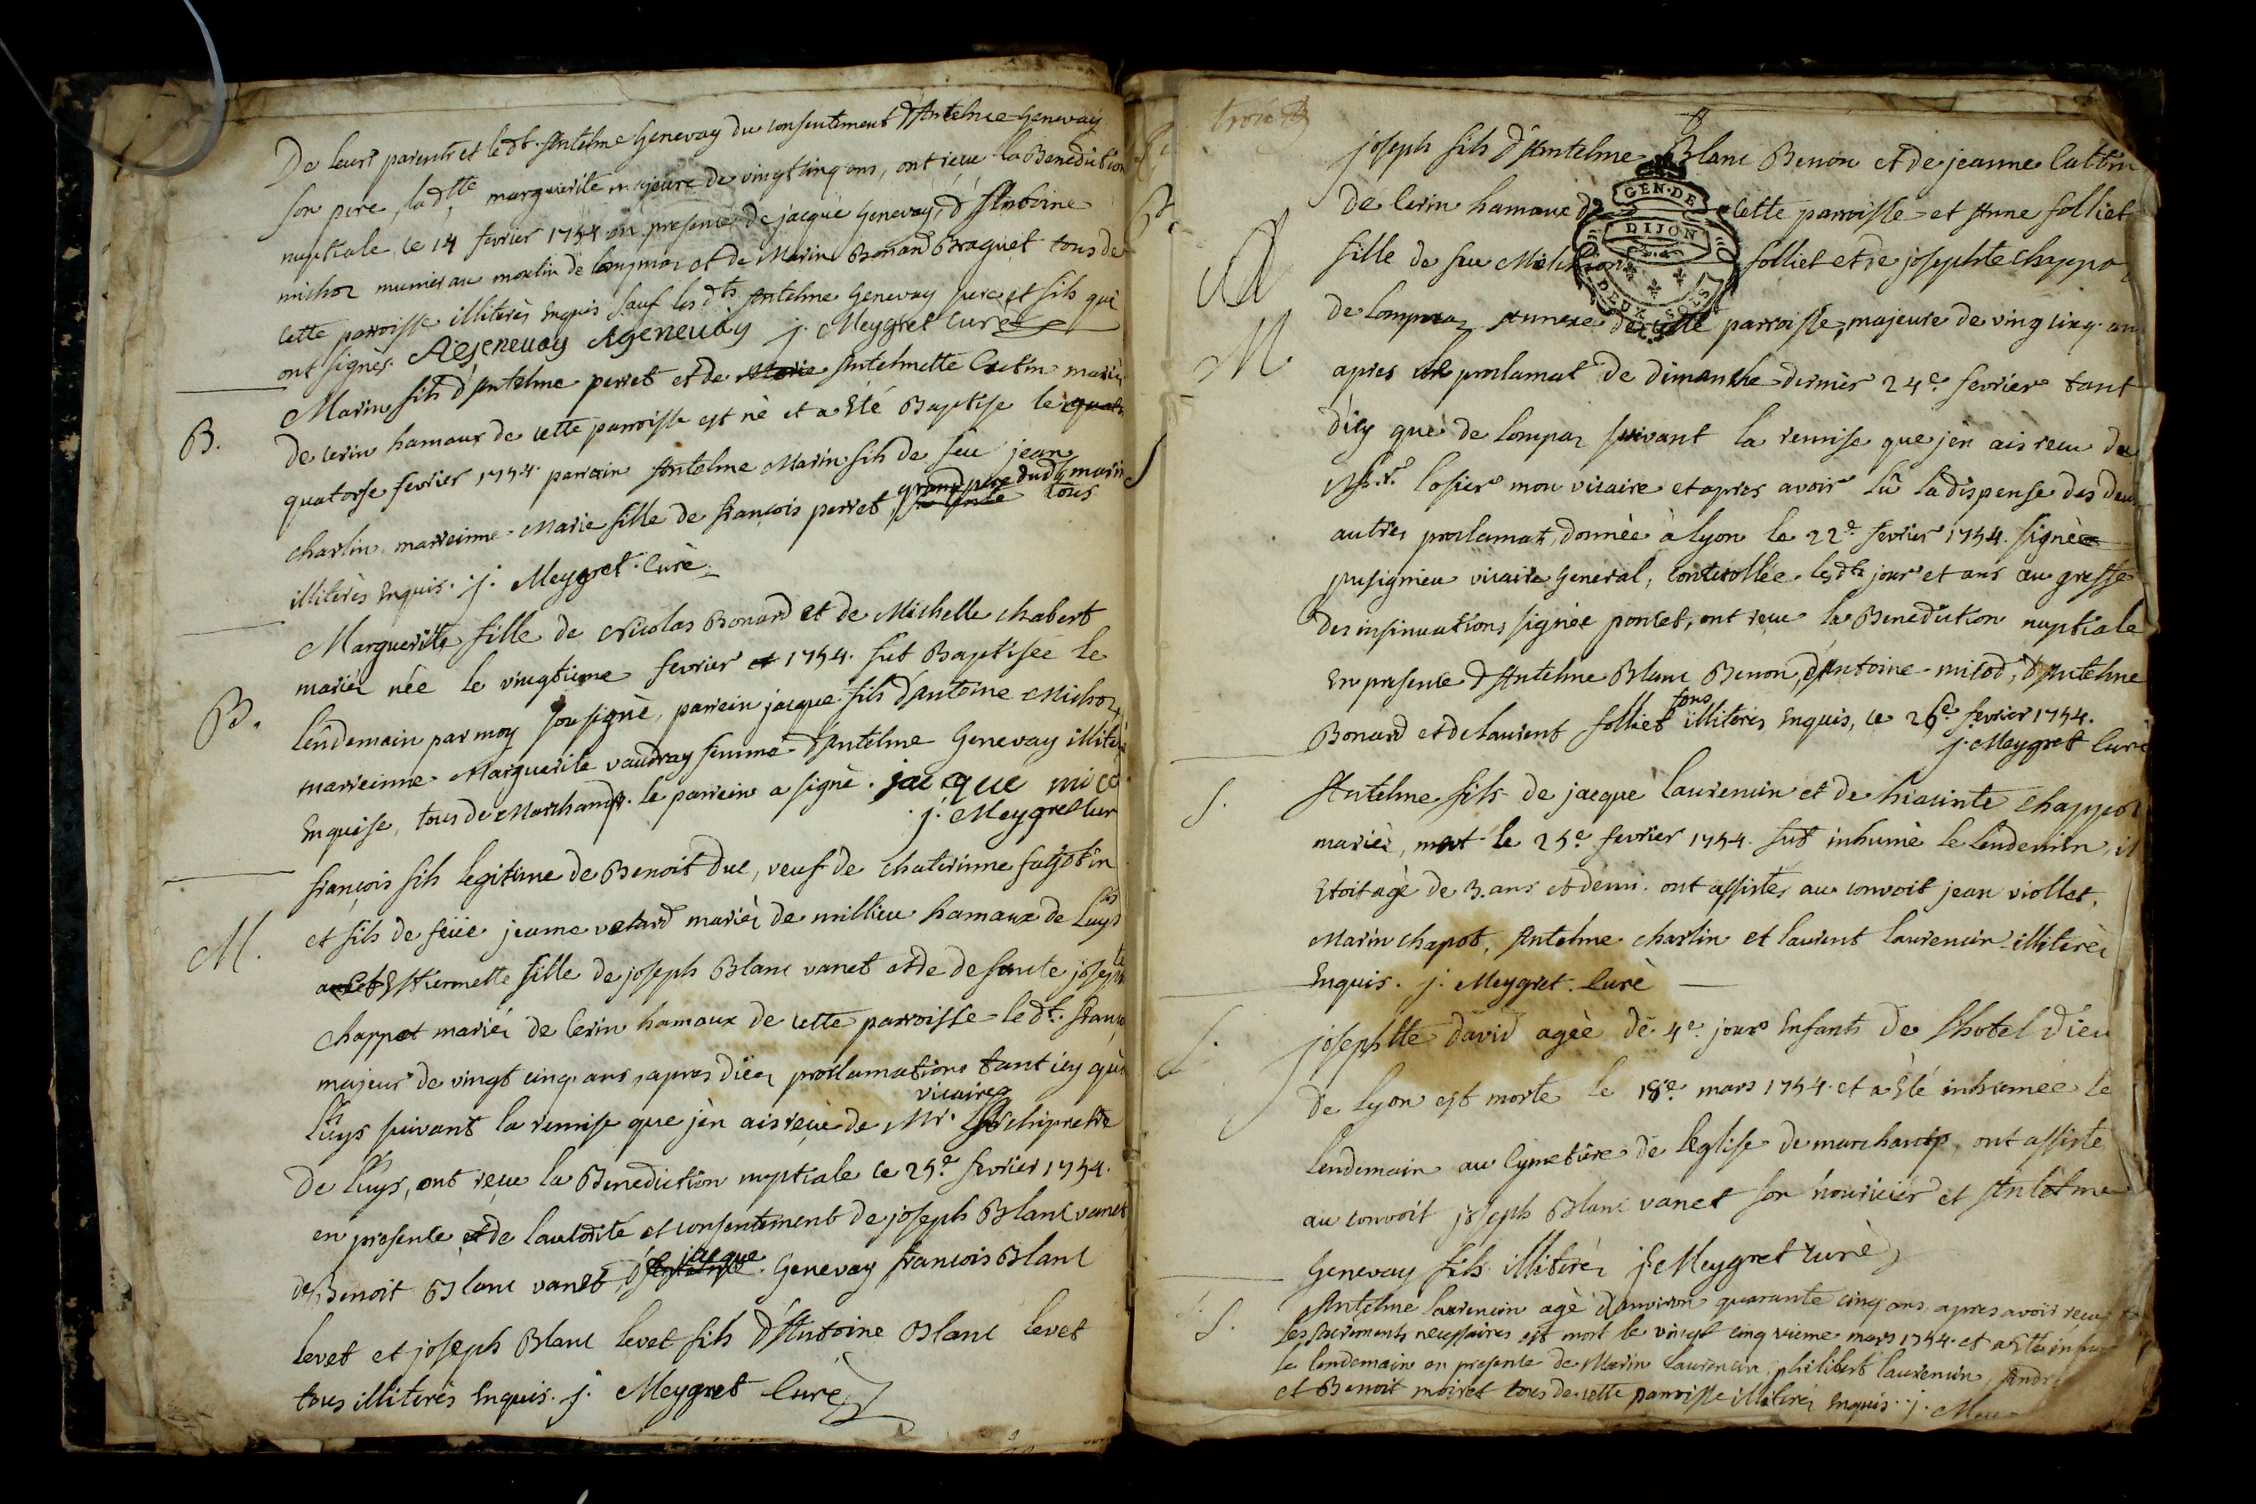 De leurs parents et le dt. Antelme Genevay du consentement d'Antelme Genevay
son pere, la dtte marguerite majeure de vingt cinq ans, ont reçue la Benediction
nuptiale le 14 fevrier 1754 en presence de jacque Genevay, d'Antoine
michoz munier au moulin de lompnaz et de Marin Bonard Braquet tous de
cette parroisse illiterès enquis sauf les dts Antelme Genevay pere et fils qui
ont signès AGenevay AGenevay j. Meygret curè
B.
Marin fils d'Antelme perret et de Marie Antelmette Cattin mariès
de cerin hamaux de cette parroisse est nè et a Eté Baptise le quat
quatorse fevrier 1754 parrain Antelme Marin fils de feu jean
charlin marreinne Marie fille de françois perret, grand pere dudt marin tous
illiterès enquis. j. Meygret. Curè
B.
Marguerite fille de Nicolas Bonard et de Michelle chabert
mariez née le vingtieme fevrier et 1754. fut Baptisée le
lendemain par moy sousignè, parrein jacque fils d'Antoine Michoz,
marreinne Marguerite vaudray femme d'Antelme Genevay illiterè
enquise, tous de Marchamp. le parrein a signè. jacque mico
j. Meygret cur
M.
françois fils legitime de Benoit Duc, veuf de Chaterinne
et fils de feüe jeanne velard mariès de millieu hamaux de Luys
et Estiennette fille de joseph Blanc vanet et de defunte josephte
Chappot mariéz de Cerin hamaux de cette parroisse le dt. franço
majeur de vingt cinq ans, apres dües proclamations tant icy què
Luys suivant la remise que jèn ais reçue de Mr. vicaires Archipretre
De Luys, ont reçue la Benediction nuptiale le 25e fevrier 1754.
en presence et de l'autorité et consentement de joseph Blanc vanet
de Benoit Blanc vanet, d' jacque Genevay françois Blanc
levet et joseph Blanc levet fils d'Antoine Blanc levet
tous illiterès enquis. j. Meygret Curé
trois
joseph fils d'Antelme Blanc Benon et de jeanne Cattin
de Cerin hamaux de cette parroisse et Anne folliet
GEN. DE
DIJON
DEUX SOLS
fille de feu folliet et de josephte chappot
M.
de lompnaz Annexe de cette parroisse, majeure de ving cinq ans
apres proclamat de dimanche dernier 24e fevrier tant
d'icy què de lompnaz suivant la remise que jèn ais reçu de
losier mon vicaire et apres avoir lû la dispense des deux
autres proclamat, donnèe à lyon le 22e fevrier 1754. signèe
pusignieu vicaire General, controllèe lesdts jour et ans au greffe
Des insinuations signèe poncet, ont reçue la Benediction nuptiale
en presence d'Antelme Blanc Benon, d'Antoine micod, d'Antelme
Bonard et de laurent folliet tous illiterès enquis, ce 26e fevrier 1754.
j. Meygret Curè
S.
Antelme fils de jacque laurencin et de hiacinte chappot
mariès, mort le 25e fevrier 1754. fut inhumè le lendemin, il
Etoit agè de 3. ans et demi. ont assistès au convoit jean viollet,
Marin chapot, Antelme charlin et laurent laurencin illiterès
enquis. j. Meygret. Curè
S.
josephtte david agèe de 4e. jours Enfants de l'hotel Dieu
De lyon est morte le 18e mars 1754. et a Eté inhumèe le
lendemain au Cymetiere de l'eglise de marchamp, ont assiste
au convoit joseph Blanc vanet son nouricier et Antelme
Genevay fils illiterès j. Meygret curè
S.
Antelme laurencin agè d'environ quarante cinq ans, apres avoir reçeu
les sacrements necessaires est mort le vingt cinq vieme mars 1754. et a eté inhu
le lendemain en presence de Marin laurencin, philibert laurencin, Andr
et Benoit moiret tous de cette parroisse illiterès enquis. j. Mey